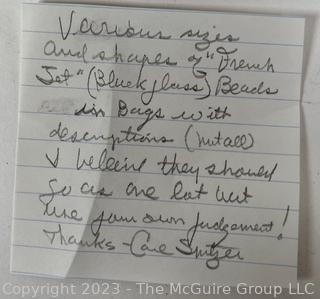 Various sizes
and shapes of "French
Jet" (Black glass) Beads
in Bags with
descriptions (not all)
I believe they should
go as one lot but
use your own judgement!
Thanks -
Copyright 2023 - The McGuire Group LLC